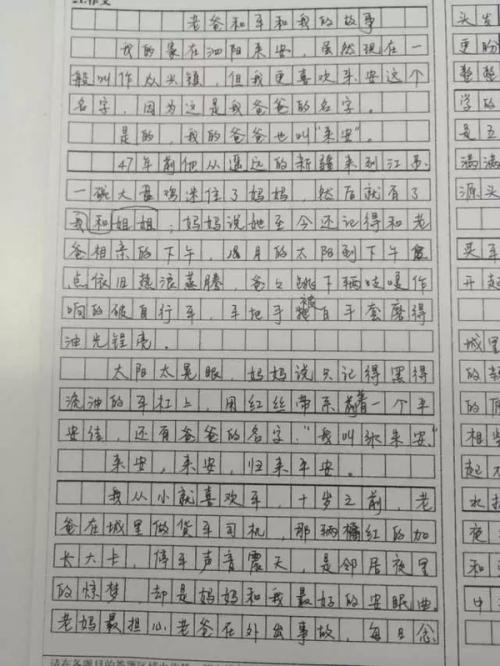 老爸和车和我的故事
我的家在泗阳来安，虽然现在一
般叫作众兴镇，但我更喜欢来安这个
名字，因为这是我爸爸的名字。
是的，我的爸爸也叫“来安”。
47年前他从遥远的新疆来到江苏
一碗大盘鸡迷住了妈妈，然后就有了
我和姐姐；妈妈说她至今还记得和老
爸相亲的下午，8月的太阳到下午
点依旧热浪蒸腾，爸爸跳下辆吱嘎作
响的破自行车，车把手被手套磨得
油光锃亮。
太阳太晃眼，妈妈说只记得黑得
流油的车杠上，用红丝带系着一个平
安结，还有爸爸的名字：“我叫张来安。”
来安，来安，归来平安。
我从小就喜欢车，十岁之前，老
爸在城里做货车司机，那辆橘红的加
长大卡，停车声音震天，是邻居夜里
的惊梦，却是妈妈和我最好的安眠曲。
老妈最担心老爸在外出事故，每日念
头发
更盼
整整
学的
是五
满满
源头
买车
开起
城里
的
的
相
起
水
和
中